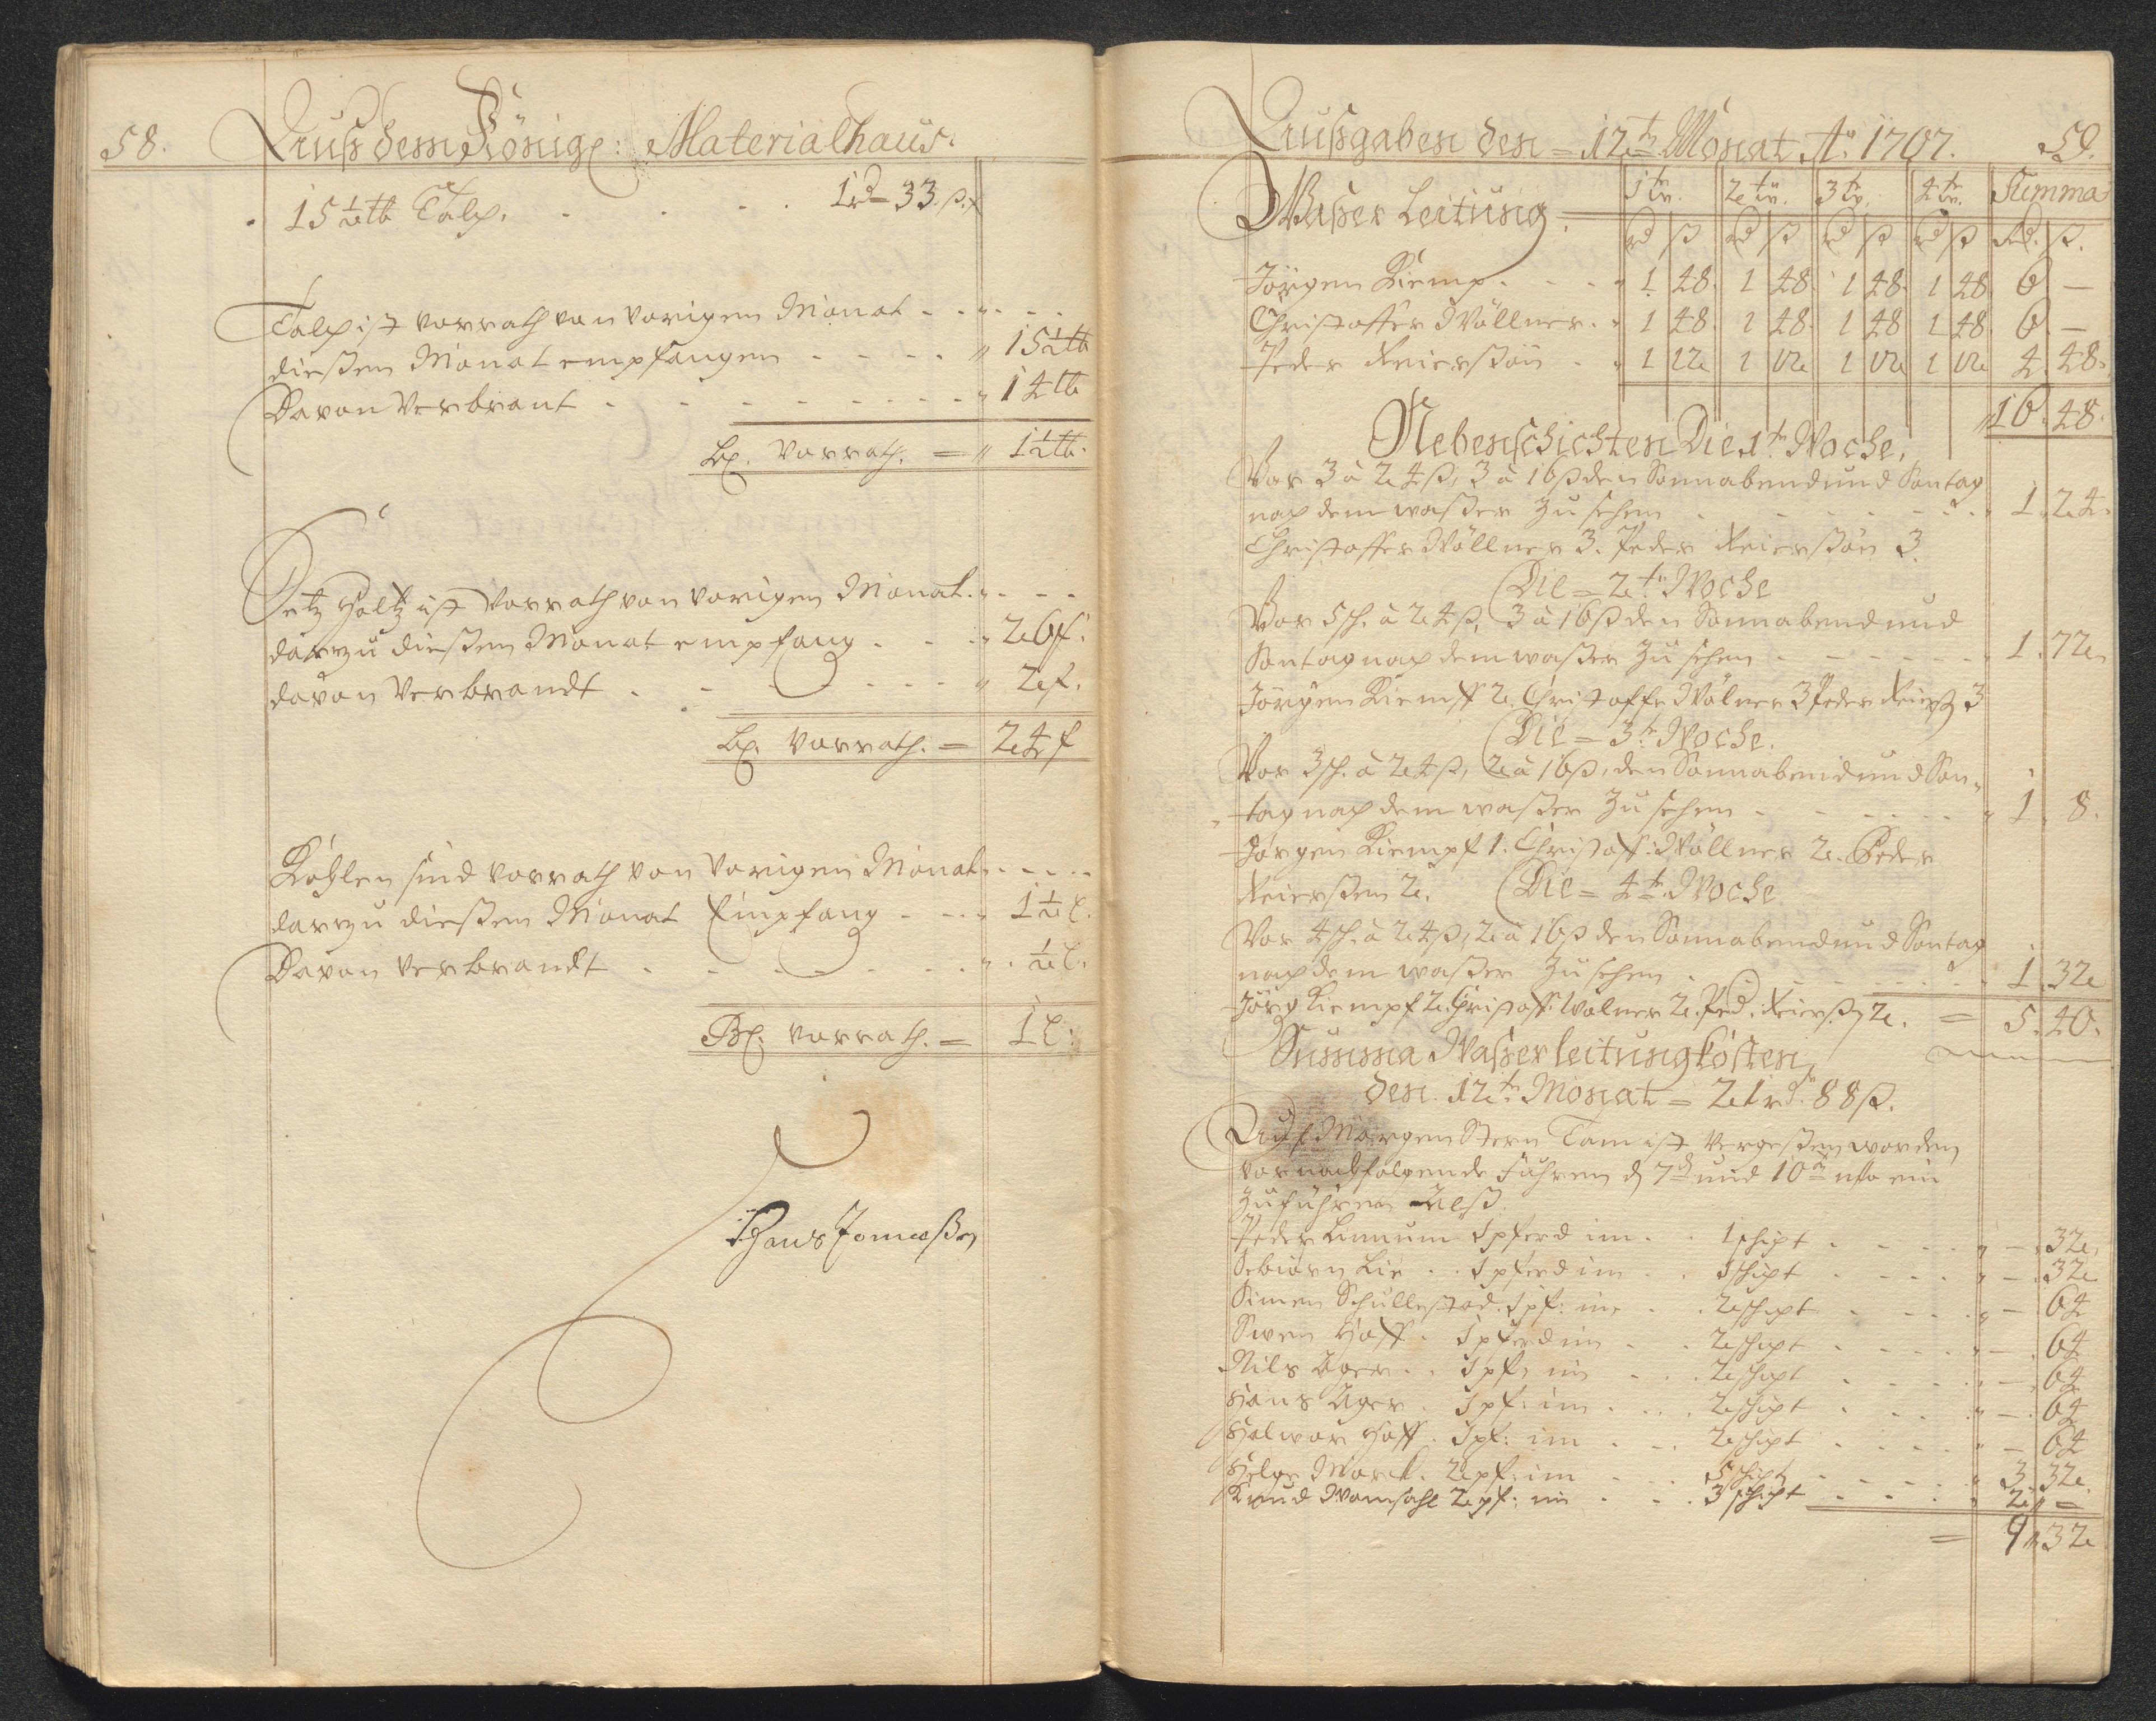 58. Auß dem Königl: Materialhaus.
15 1/2 ℔ Talch. . . . . 1 rd 33 ß.
Talch ist vorrath von vorigen Monat . . .
dießen Monat empfangen . . . . " 15 1/2 ℔
Davon Verbrant . . . . . . . " 14 ℔
Bl. Vorrath. = " 1 1/2 ℔.
Setz Holtz ist Vorrath von vorigen Monat. . . .
darzu dießen Monat empfang . . . " 26 f.
davon Verbrandt . . . . . . " 2 f.
Bl. Vorrath. = 24 f
Kohlen sind vorrath von Vorigen Monat . . . .
darzu dießem Monat Empfang . . . 1 1/2 l.
Davon verbrandt . . . . . . . " 1/2 l.
Bl. vorrath. = 1 l.
Außgaben den = 12tn Monat Ao 1707. 59.
Waßer Leitung. 1 tw. 2 tw. 3 tw. 4 tw. Summa
rd ß rd ß rd ß rd ß Rd. ß.
Jörgen Kiemp. . . . 1 48. 1 48. 1 48. 1 48. 6 —
Christoffer Wöllner. . 1 48. 1 48. 1 48 1 48. 6. —
Peder Reierßön . . 1 12 1 12 1 12 1 12 4. 48.
16. 48.
Nebenschichten Die 1te Woche,
Vor 3 à 24 ß, 3 à 16 ß den Sonnabend und Sontag
nach dem waßer Zu sehen . . . . . . 1. 24.
Christoffer Wöllner 3. Peder Reierßön 3.
Die = 2te Woche
Vor 5 sch. à 24 ß, 3 à 16 ß den Sonnabend und
Sontag nach dem waßer Zu sehen . . . . . . 1. 72.
Jörgen Kiempff 2. Christoffr Wölner 3 Peder Reierß 3
Die = 3te Woche.
Vor 3 sch. à 24 ß, 2 à 16 ß, den Sonnabend und Son-
tag nach dem waßer Zu sehen . . . . . . 1. 8.
Jörgen Kiempf 1. Christoff: Wöllner 2. Peder
Reierßen 2. Die = 4te Woche
Vor 4 sch. à 24 ß, 2 à 16 ß den Sonnabend und Sontag
nach dem waßer Zu sehen . . . . . . 1. 32
Jörg Kiempf 2. Christoff. Wölner 2. Ped. Reierß 2. = 5. 40.
Summa Waßerleitungkosten
den. 12tn Monat = 21 rd. 88 ß.
Auf Morgen Stern Tam ist Vergeßen worden
vor nachfolgende Fuhren d 7 und 10 ein
Zuführen Alß.
Peder Linnum 1 pferd im . . 1 schicht . . . . " — 32.
Lie . . 1 pferd im . . 1 schicht . . . . " — 32
Simen Schullestad. 1 pf: im . . 2 schicht . . . . " — 64
Swen Hoff . 1 pferd im . . 2 schicht . . . . " — 64
Nils Ager . . 1 pf: im . . 2 schicht . . . . " — 64
Hans Ager . 1 pf: im . . 2 schicht . . . . " — 64
Halwor Hoff . 1 pf: im . . 2 schicht . . . . " — 64
Helge Morck. 2 pf: im . . 5 schicht . . . . " 3. 32.
Knud 2 pf: im . . 3 schicht . . . . " 2 " —
= 9 " 32